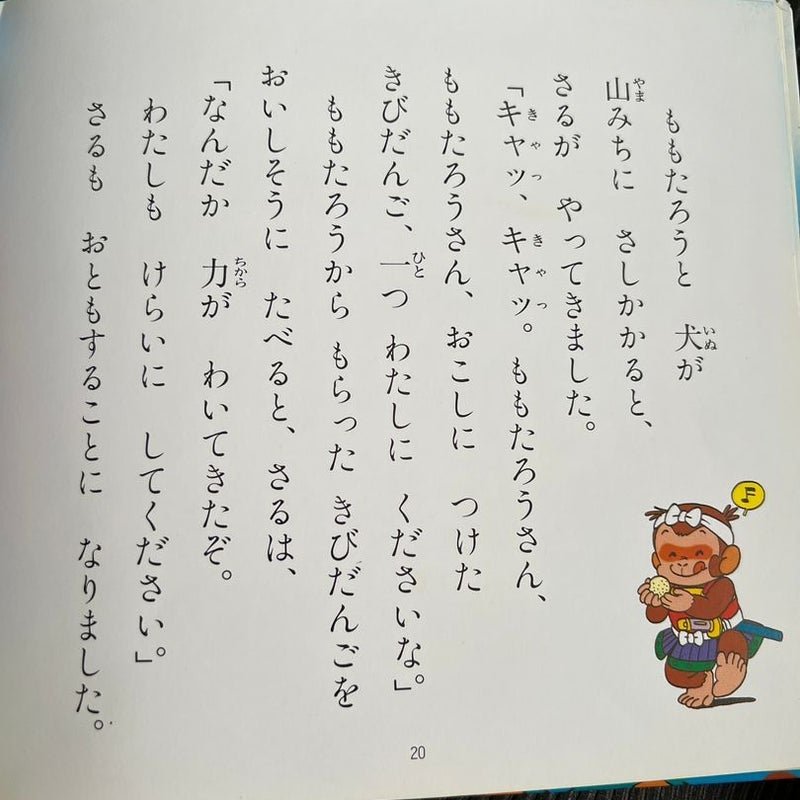 ももたろうと　犬が
山みちに　さしかかると、
さるが　やってきました。
「キャッ、キャッ。ももたろうさん、
ももたろうさん、おこしに　つけた
きびだんご、一つ　わたしに　くださいな。」
ももたろうから　もらった　きびだんごを
おいしそうに　たべると、さるは、
「なんだか　力が　わいてきたぞ。
わたしも　けらいに　してください。」
さるも　おともすることに　なりました。
20